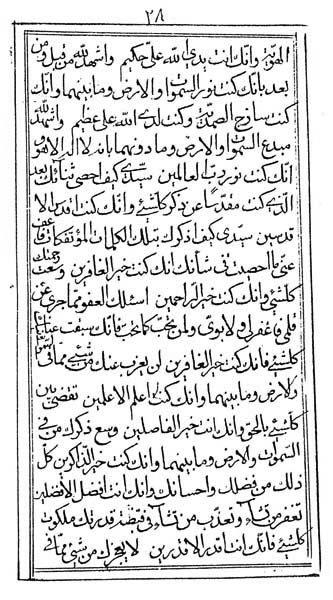 ٢٨
الهویّة وانّك انت بدیّ الله علیّ حكیم واشهد لله من قبل ومن
بعد بانّك كنت نور السّموات والارض وما بینهما وانّك
كنت ساذج الصمدیّة وكنت لدی الله علیّ عظیم واشهد لله
مبدع السّموات والارض وما دونهما بانه لا اله الا هو
انّك كنت نور ربّ العالمین سیّدی كیف احصی ثنائك بعد
الّذی كنت مقدّسا عن ذكر كلّشیء وانّك كنت اقدر الا
قدسین سیّدی كیف اذكرك بتلك الكلمات المؤتفكات فاعف
عنّی ما احصیت فی شأنك انك كنت خیر الغافرین وسعت رحمتك
كلّشیء وانك كنت خیر الراحمین اسئلك العفو مما جری عن
قلمی فاغفر لی ولابوی ولمن یحبّ كما تحب فانّك سبقت عنایتك
كلّشیء فانك كنت خیر الغافرین لن یعزب عنك من شیء مما فی السّموات
والارض وما بینهما وانك كنت اعلم الاعلمین تقضی بین
كلّشیء بالحقّ وانك انت خیر الفاصلین وسع ذكرك من فی
السّموات والارض وما بینهما وانك كنت خیر الذاكرین كلّ
ذلك من فضلك واحسانك وانك انت افضل الافضلین
تغفر من تشاء وتعذّب من تشاء فی قبضتك قدرتك ملكوت
كلّشیء فانّك انت اقدر الاقدرین لا یعجزك من شیء مما فی